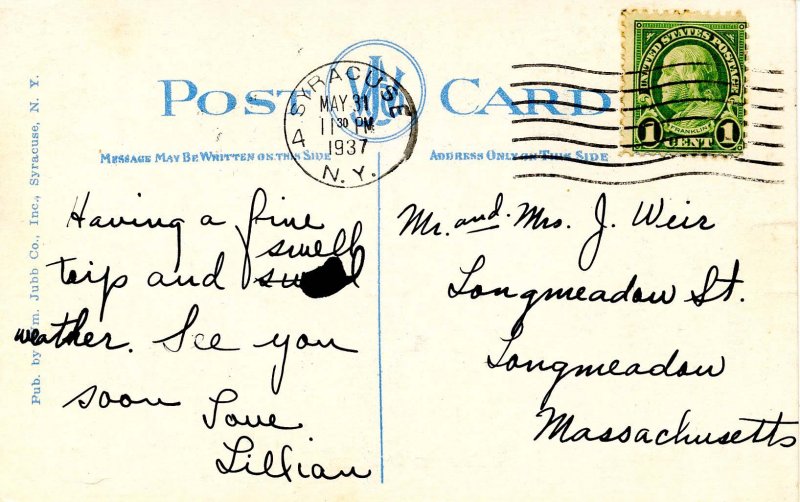 POST CARD
SYRACUSE
4
MAY 31
11 30 PM
1937
N. Y.
UNITED STATES POSTAGE
FRANKLIN
1 CENT 1
MESSAGE MAY BE WRITTEN ON THIS SIDE
ADDRESS ONLY ON THIS SIDE
Pub. by Wm. Jubb Co., Inc., Syracuse, N. Y.
Having a fine
trip and swell
weather. See you
soon
Love
Lillian
Mr. and Mrs. J. Weir
Longmeadow St.
Longmeadow
Massachusetts